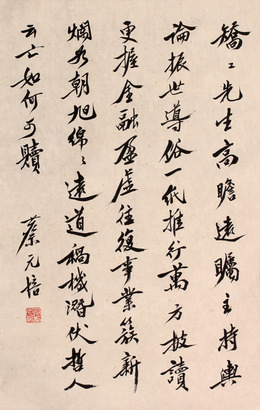 矯々先生高瞻遠矚主持輿
論振世導俗一代推行萬方披讀
更握金融盈虛往復事業簇新
爛如朝旭綿々遠道禍機潛伏哲人
云亡如何可贖
蔡元培